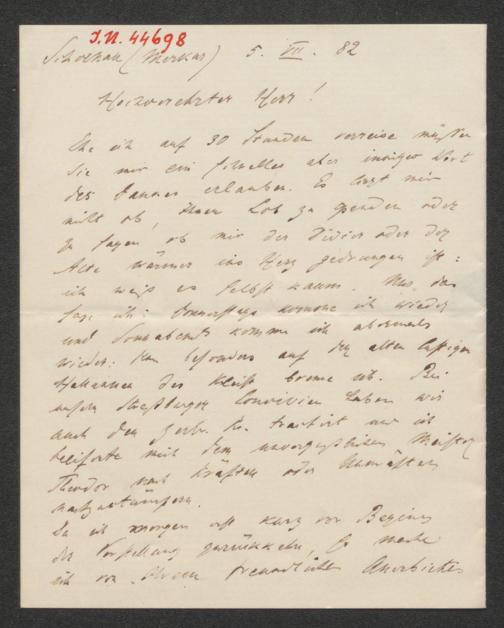 J.N. 44698
Schoenau (Merkur) 5. VII. 82
Hochverehrter Herr!
Ehe ich auf 30 Stunden verreise müssen
Sie mir ein schnelles aber inniges Wort
des Dankes erlauben. Es liegt mir
nicht ob, Ihnen Lob zu spenden oder
zu sagen ob mir der Didier oder der
Alte wärmer ins Herz gedrungen ist:
ich weiß es selbst kaum. Nur das
sag ich: Donnerstags komme ich wieder
und Sonnabends komme ich abermals
wieder: besonders auf den alten
des Kleist brenne ich. Bei
unsern Straßburger Convivien haben wir
auch den zerbr. Kr. tractirt und ich
mit dem unvergeßlichen Meister
Theodor nach Kräften oder Unkräften

Da ich morgen erst kurz vor Beginn
der Vorstellung zurückkehre, so mache
ich von Ihrem freundlichen Anerbieten